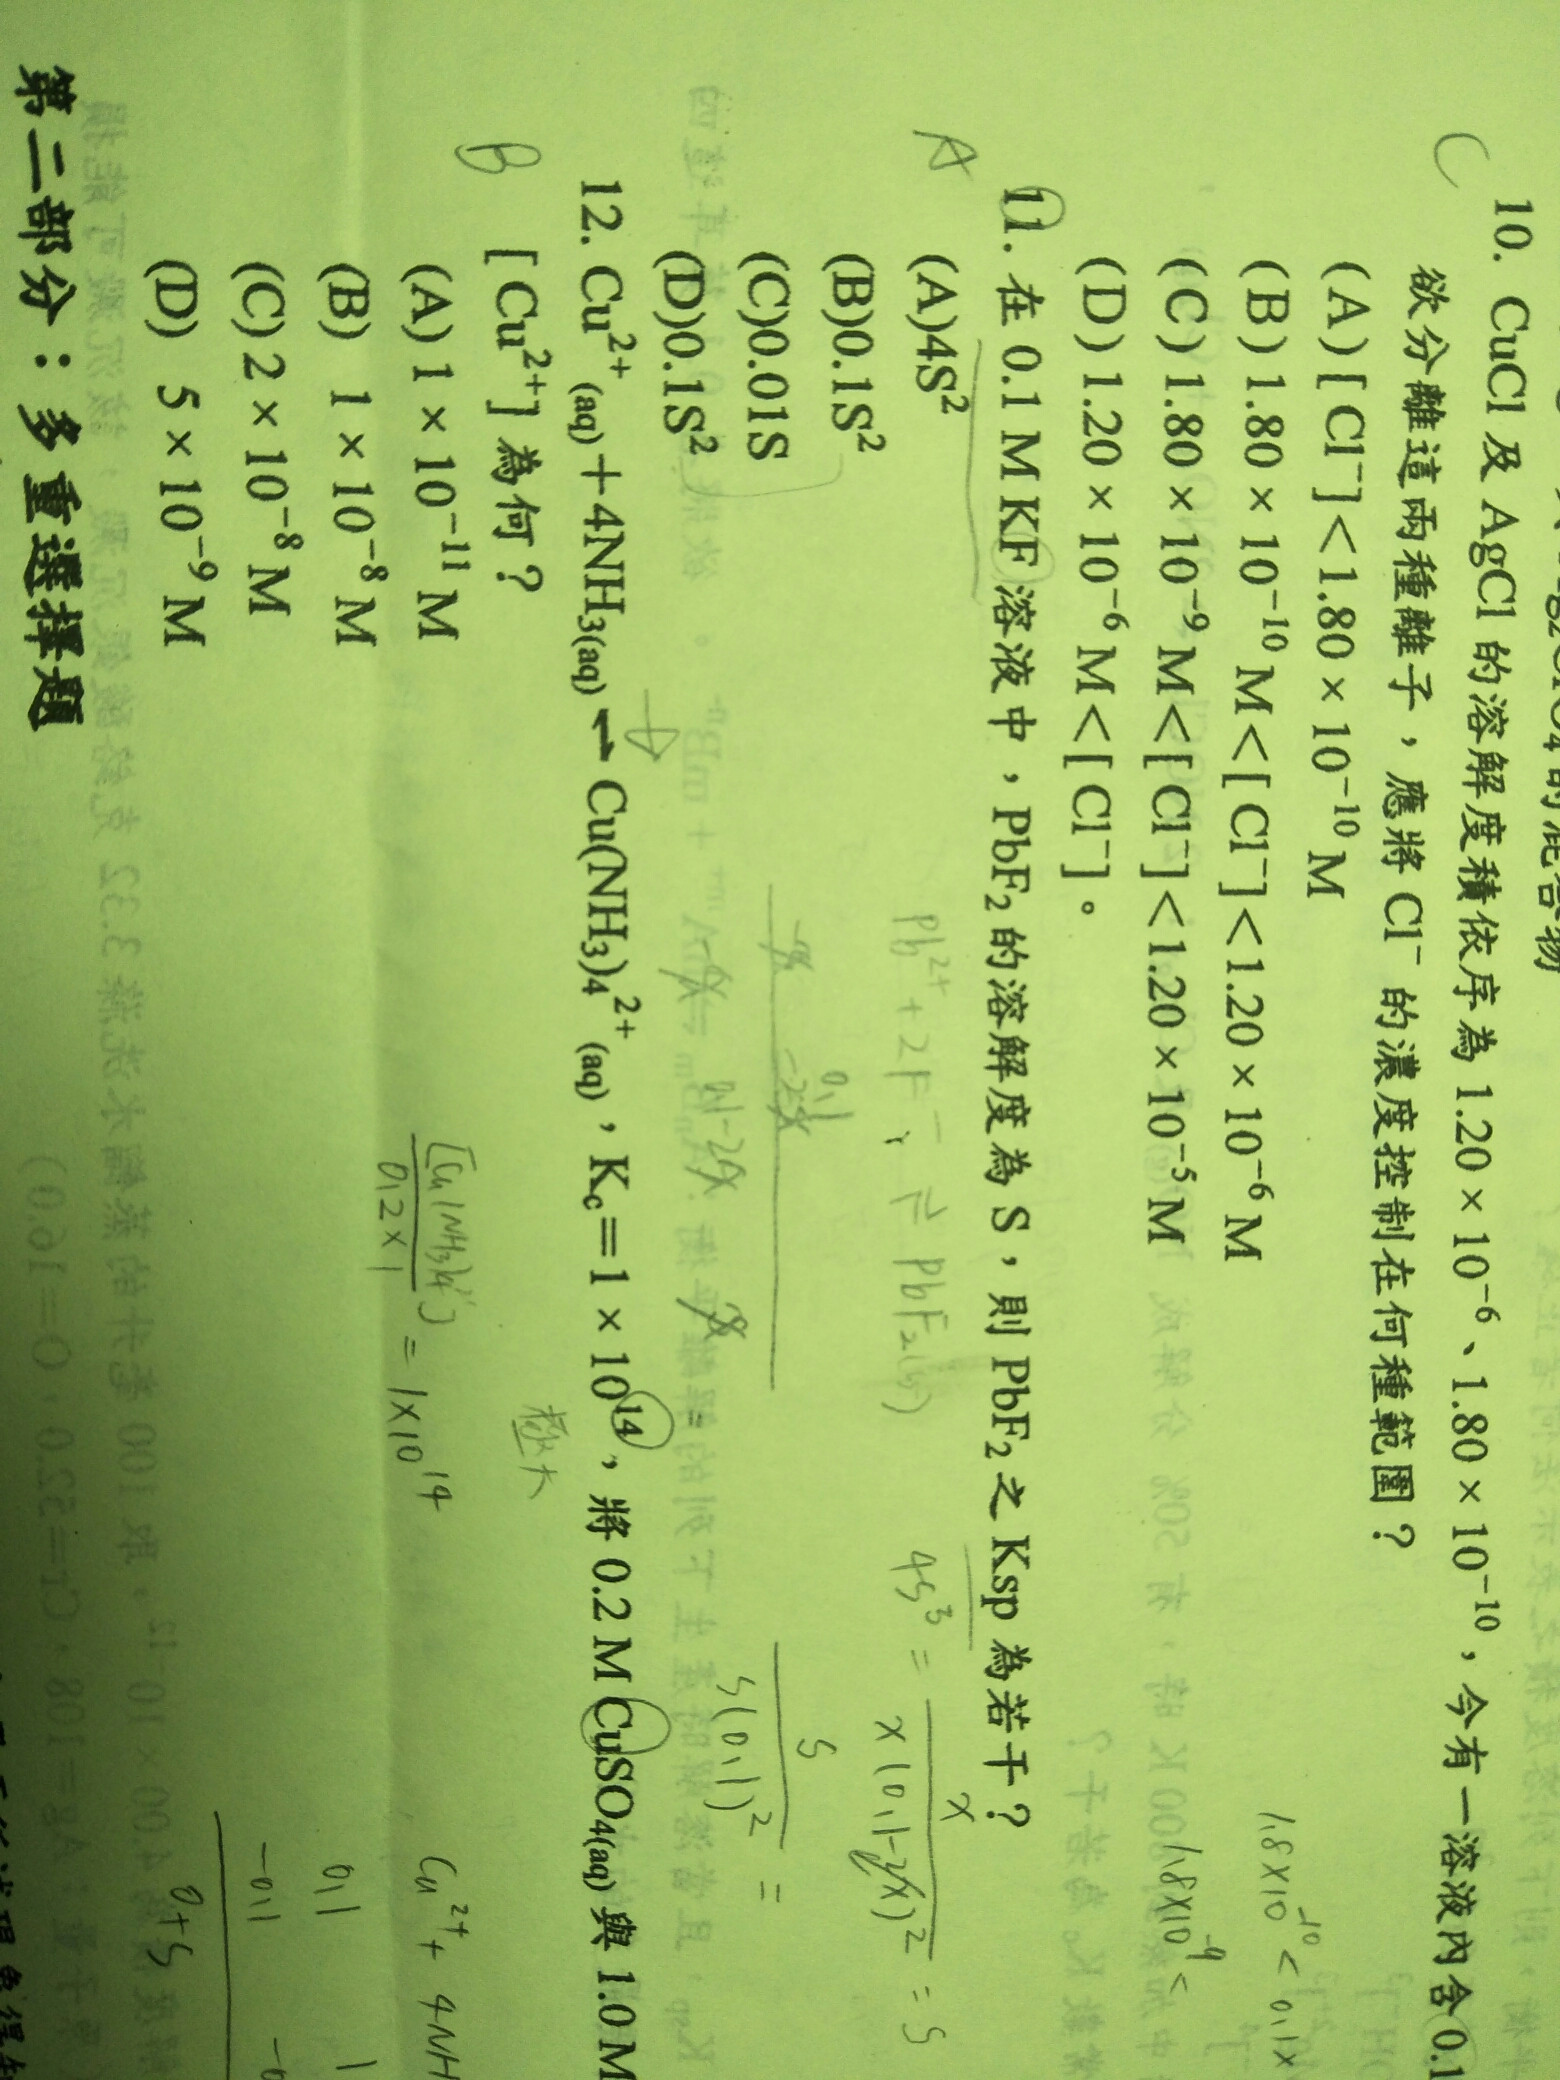 10. CuCl 及 AgCl 的溶解度積依序為 1.20 × 10⁻⁶、1.80 × 10⁻¹⁰，今有一溶液內含 0.1
欲分離這兩種離子，應將 Cl⁻ 的濃度控制在何種範圍？
C
(A) [ Cl⁻] < 1.80 × 10⁻¹⁰ M
(B) 1.80 × 10⁻¹⁰ M < [ Cl⁻] < 1.20 × 10⁻⁶ M
(C) 1.80 × 10⁻⁹ M < [ Cl⁻] < 1.20 × 10⁻⁵ M
(D) 1.20 × 10⁻⁶ M < [ Cl⁻]。
1.8×10⁻¹⁰ < 0.1×
1.8×10⁻⁹ <
11. 在 0.1 M KF 溶液中，PbF₂ 的溶解度為 S，則 PbF₂ 之 Ksp 為若干？
A
(A)4S²
(B)0.1S²
(C)0.01S
(D)0.1S²
Pb²⁺ + 2F⁻ ⇌ PbF₂(s)
0.1
4S³ = x / x(0.1-2x)² = S
S / S(0.1)² =
12. Cu²⁺(aq)＋4NH₃(aq) ⇌ Cu(NH₃)₄²⁺(aq)，Kc＝1 × 10¹⁴，將 0.2 M CuSO₄(aq) 與 1.0 M
[ Cu²⁺] 為何？
B
(A) 1 × 10⁻¹¹ M
(B) 1 × 10⁻⁸ M
(C) 2 × 10⁻⁸ M
(D) 5 × 10⁻⁹ M
極大
[Cu(NH₃)₄²⁺] / 0.2×1 = 1×10¹⁴
Cu²⁺ + 4NH
0.1 1
-0.1
0+S
第二部分：多重選擇題